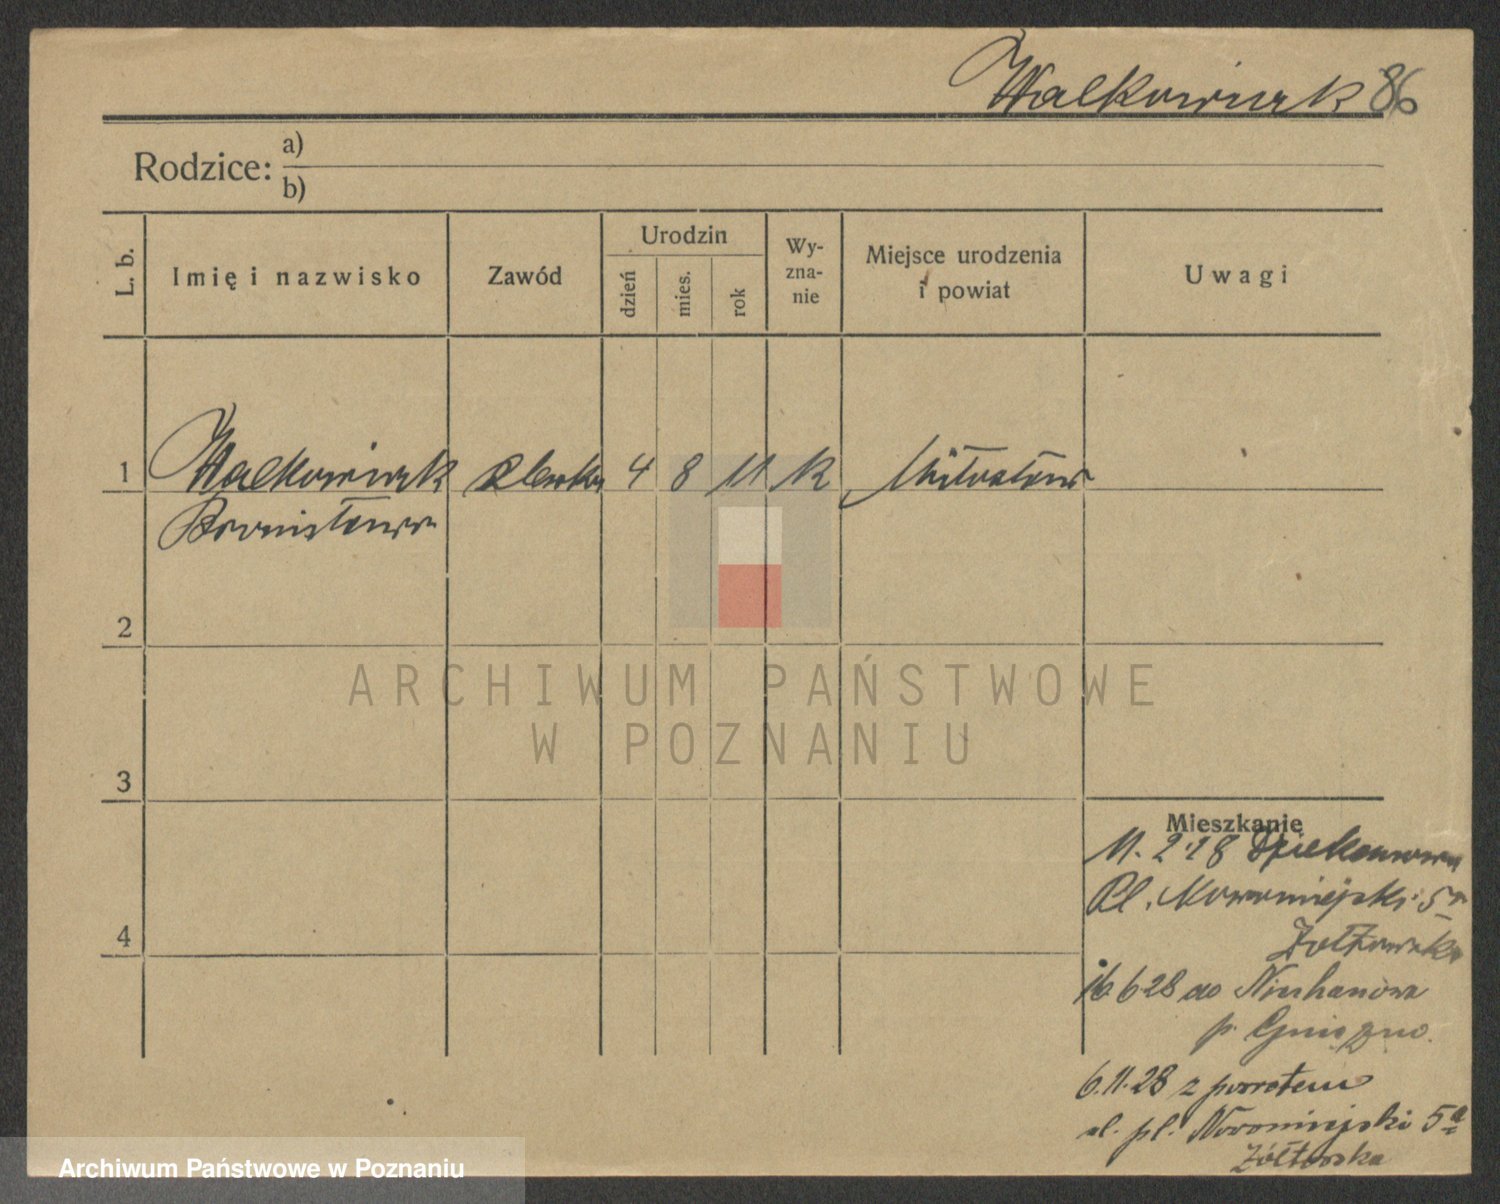 Walkowiak 86
Rodzice: a)
b)
L. b.
Imię i nazwisko
Zawód
Urodzin
dzień
mies.
rok
Wy-
zna-
nie
Miejsce urodzenia
i powiat
Uwagi
1
Walkowiak
4
8
11
k
Bronisława
2
3
4
Mieszkanie
11. 2 28 Dziekanowa
Pl. Nowomiejski 5a
Żółtowska
16 6 28 do Niechanowa
p. Gniezno.
6.11.28 z powrotem
pl. Nowomiejski 5a
Żółtowska
ARCHIWUM PAŃSTWOWE
W POZNANIU
Archiwum Państwowe w Poznaniu